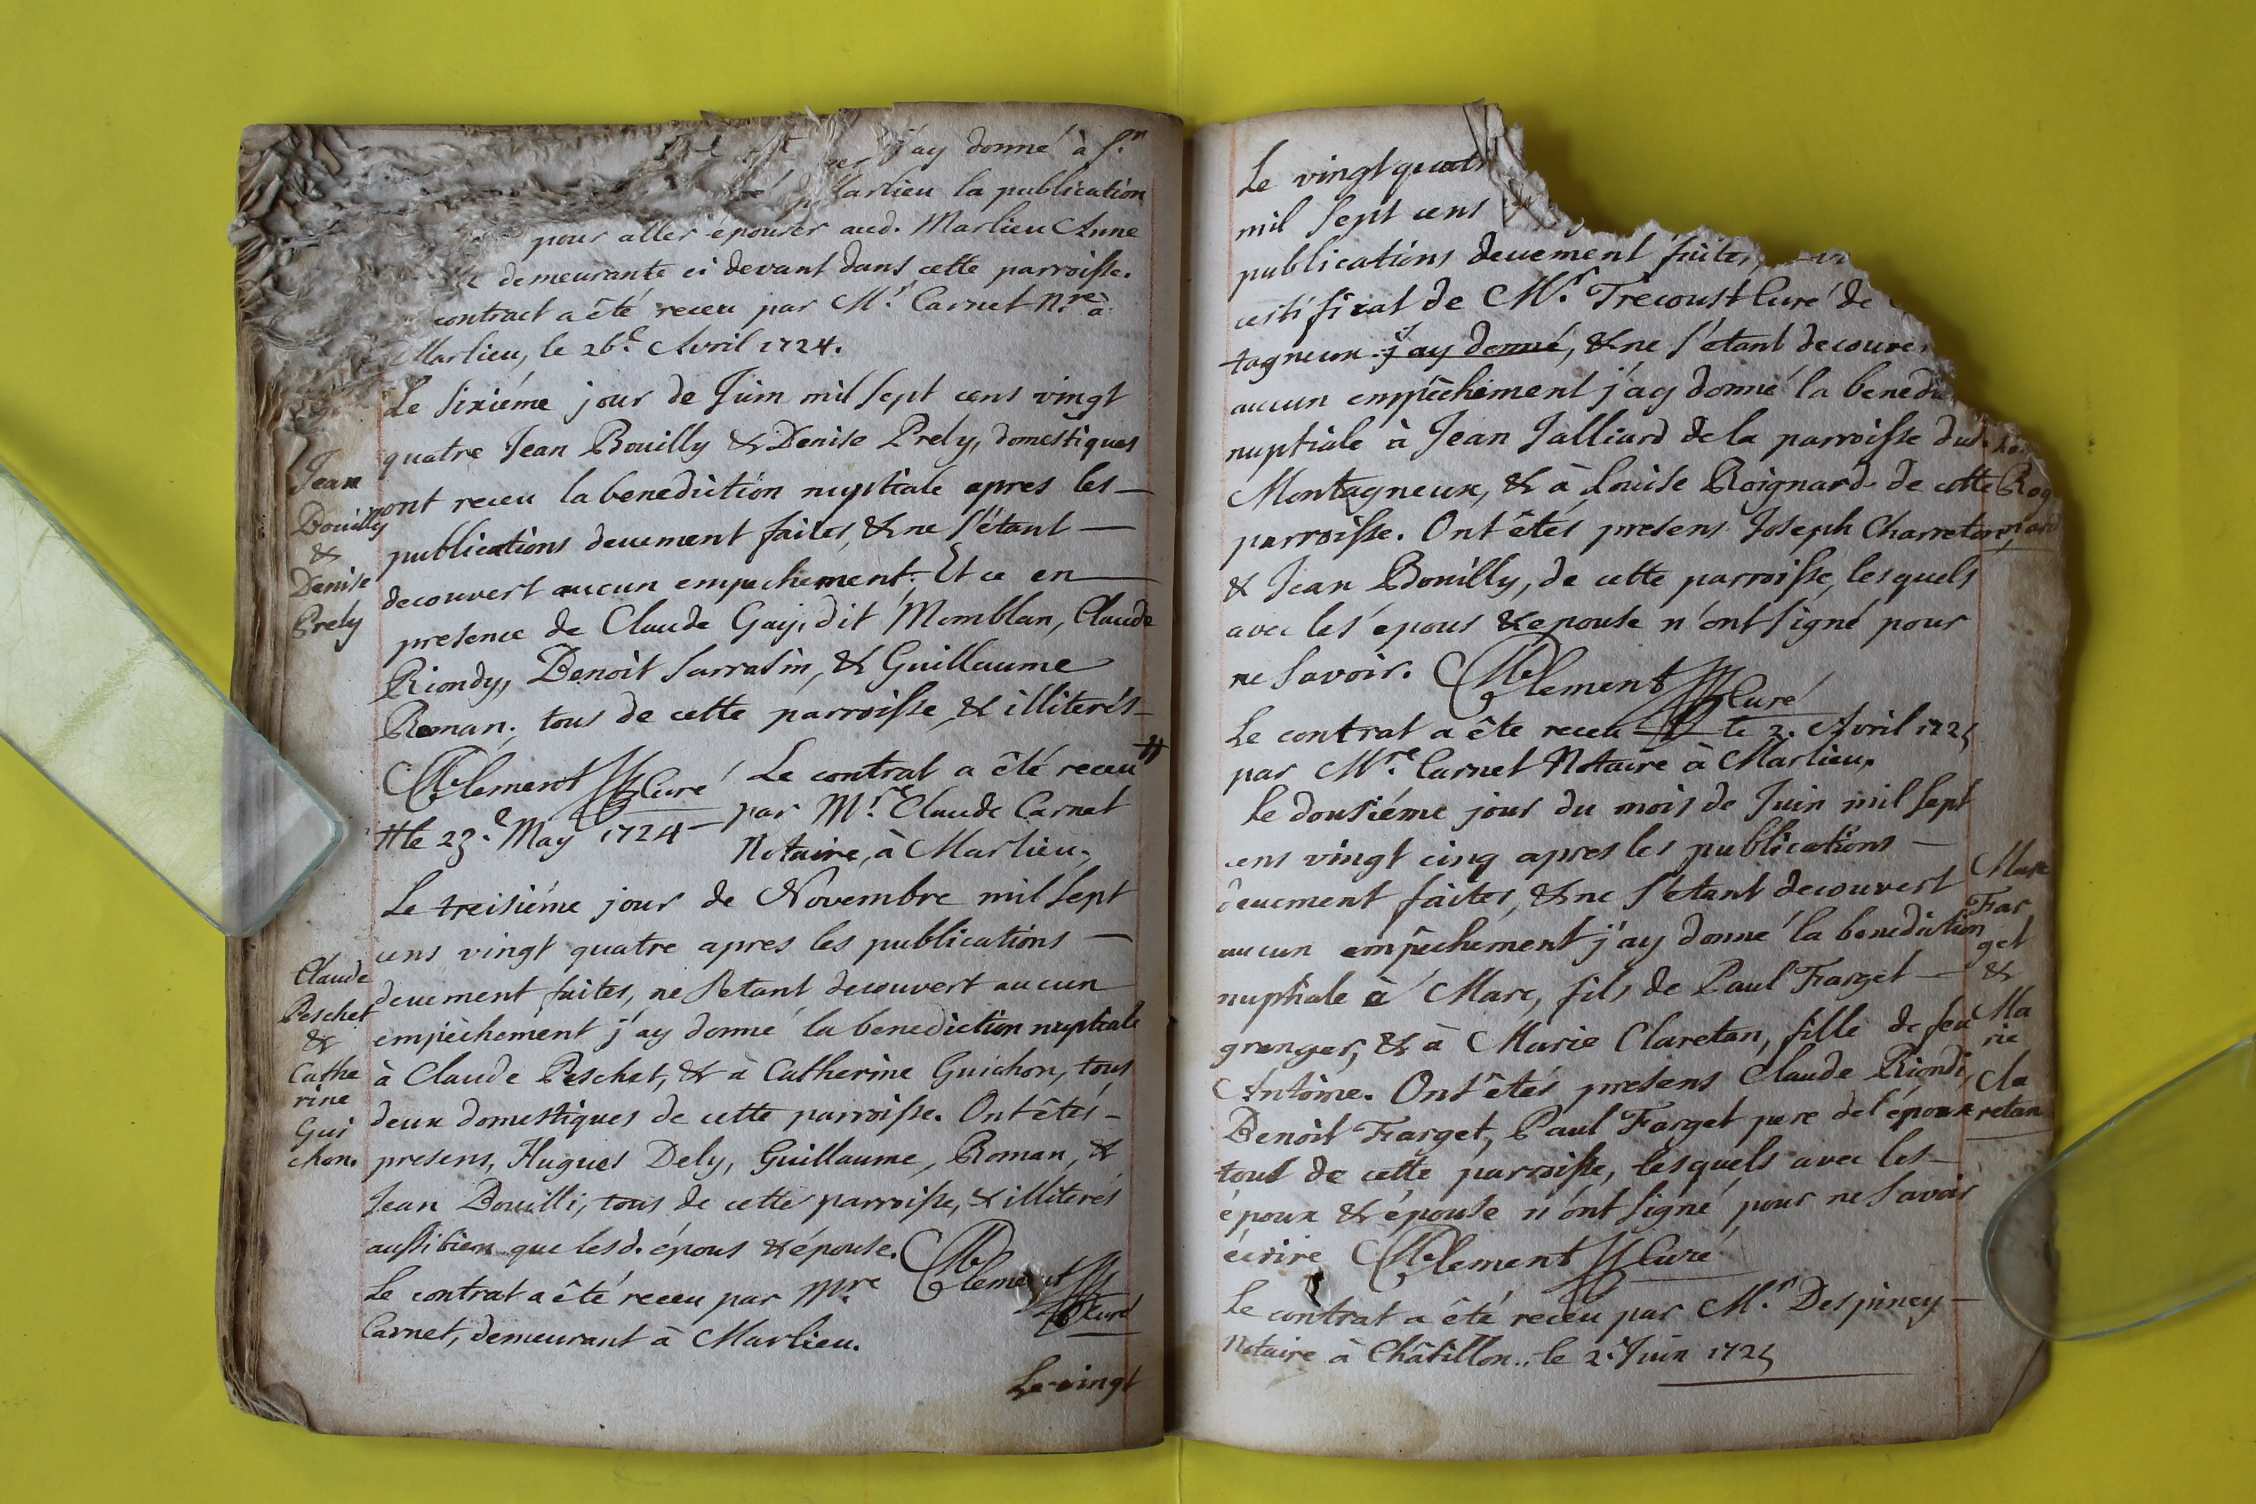 j'ay donné à Sr.n
Marlieu la publication
pour aller épouser aud. Marlieu Anne
demeurante ci devant dans cette parroisse.
contract a êté receu par Mr. Carnet Nre. à
Marlieu, le 26.e Avril 1724.
Le sixiéme jour de Juin mil sept cens vingt
quatre Jean Bouilly & Denise Prely, domestiques
ont receu la benediction nuptiale apres les —
publications deuement faites, & ne s'étant —
decouvert aucun empechement. Et ce en —
presence de Claude Gay, dit Momblan, Claude
Riondy, Benoit Sarrasin, & Guillaume
Roman, tous de cette parroisse, & illiterés —
Clement Curé Le contrat a êté receu #
# le 23.e May 1724 — par Mre. Claude Carnet
Notaire, à Marlieu.
Jean
Bouilly
&
Denise
Prely
Le treisiéme jour de Novembre mil sept
cens vingt quatre apres les publications —
deuement faites, ne s'etant decouvert aucun
empèchement j'ay donné la benediction nuptiale
à Claude Peschet, & à Catherine Guichon, tous
deux domestiques de cette parroisse. Ont êtés —
presens, Hugues Dely, Guillaume Roman, &
Jean Bouilli, tous de cette parroisse, & illiterés
aussi bien que lesd. épous & épouse. Clement
Curé
Le contrat a êté receu par Mre.
Carnet, demeurant à Marlieu.
Claude
Peschet
&
Cathe
rine
Gui
chon.
Le vingt
Le vingt quatr
mil sept cens
publications deuement faites,
certificat de Mr. Trecoust Curé de
tagneux j'ay donné, & ne s'étant decouver
aucun empêchement j'ay donné la benedic
nuptiale à Jean Jalliard de la parroisse dud.
Montagneux, & à Louise Roignard de cette
parroisse. Ont êtés presens Joseph Charreton,
& Jean Bouilly, de cette parroisse, lesquels
avec les épous & epouse n'ont signé pour
ne savoir. Clement Curé
Rog
nard
Le contrat a êté receu le 2. Avril 1725
par Mre. Carnet Notaire à Marlieu.
Le dousiéme jour du mois de Juin mil sept
cens vingt cinq apres les publications —
deuement faites, & ne s'étant decouvert
aucun empêchement j'ay donné la benediction
nuptiale à Marc, fils de Paul Farget —
granger, & à Marie Claretan, fille de feu
Antoine. Ont êtés presens Claude Riondi,
Benoit Farget, Paul Farget pere de l'époux
tous de cette parroisse, lesquels avec les —
époux & épouse n'ont signé pour ne savoir
écrire Clement Curé
Marc
Far
get
&
Ma
rie
Cla
retan
Le contrat a êté receu par Mr. Despiney —
Notaire à Châtillon., le 2. Juin 1725